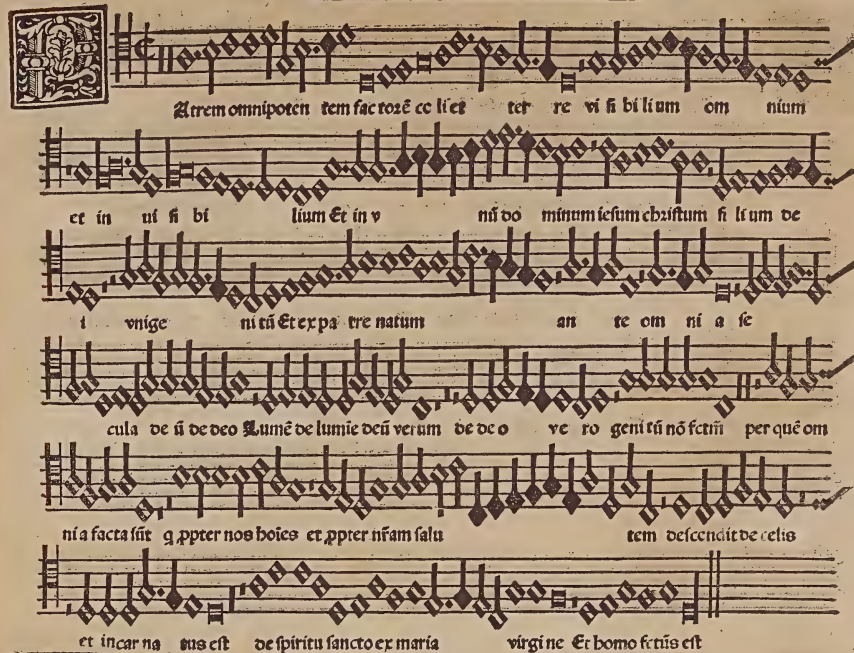 Patrem omnipoten tem factorē celi et ter re vi si bi lium om nium
et in ui si bi lium Et in v nū do minum iesum christum fi li um de
i vnige ni tū Et ex pa tre natum an te om ni a se
cula de ū de deo Lumē de lumie deū verum de de o ve ro geni tū nō fctm̄ per quē om
ni a facta sūt q ꝓpter nos hoīes et ꝓpter nr̄am salu tem descendit de celis
et incar na tus est de spiritu sancto ex maria virgi ne Et homo fctūs est